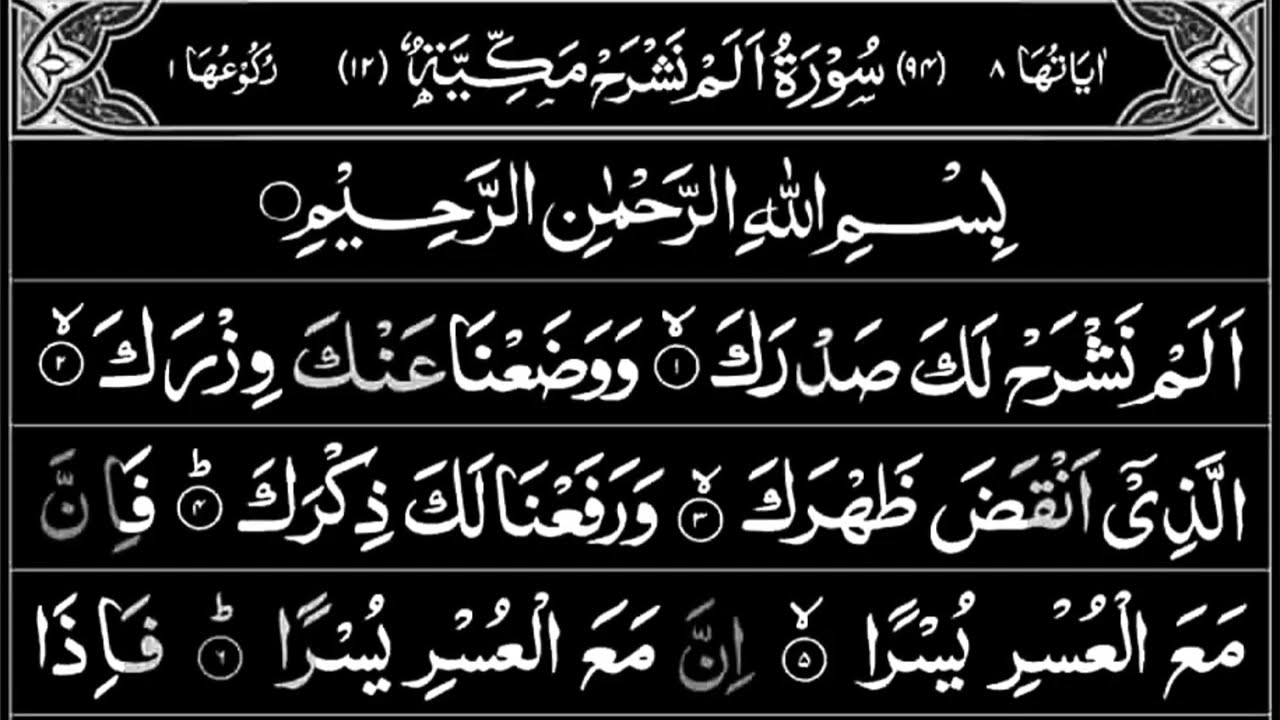 اٰيَاتُهَا ٨ (٩٤) سُوْرَةُ اَلَمْ نَشْرَحْ مَكِّيَّةٌ (١٢) رُكُوْعُهَا ١
بِسْمِ اللّٰهِ الرَّحْمٰنِ الرَّحِيْمِ ۝
اَلَمْ نَشْرَحْ لَكَ صَدْرَكَ ۙ﴿١﴾ وَوَضَعْنَا عَنْكَ وِزْرَكَ ۙ﴿٢﴾
الَّذِىْٓ اَنْقَضَ ظَهْرَكَ ۙ﴿٣﴾ وَرَفَعْنَا لَكَ ذِكْرَكَ ؕ﴿٤﴾ فَاِنَّ
مَعَ الْعُسْرِ يُسْرًا ۙ﴿٥﴾ اِنَّ مَعَ الْعُسْرِ يُسْرًا ؕ﴿٦﴾ فَاِذَا